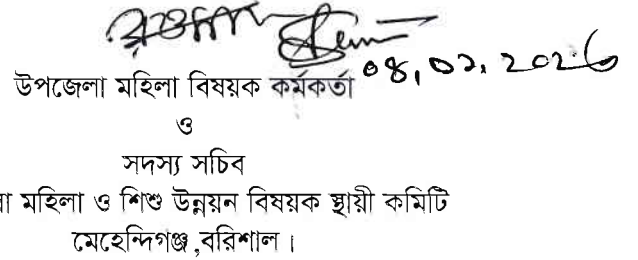 উপজেলা মহিলা বিষয়ক কর্মকর্তা
ও
সদস্য সচিব
মহিলা ও শিশু উন্নয়ন বিষয়ক স্থায়ী কমিটি
মেহেন্দিগঞ্জ,বরিশাল।